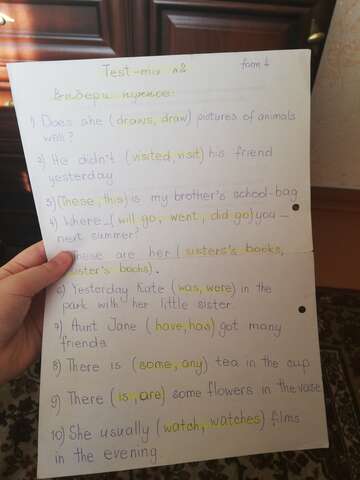 Test-mix №2
form 4
Выбери нужное.
1) Does she (draws, draw) pictures of animals
2) He didn't (visited, visit) his friend
yesterday
3) (These, this) is my brother's school-bag
4) Where (will go, went, did go) you
next summer?
These are her (sisters's books,
sister's books).
6) Yesterday Kate (was, were) in the
park with her little sister
7) Aunt Jane (have, has) got many
friends
8) There is (some, any) tea in the cup
9) There (is, are) some flowers in the vase
10) She usually (watch, watches) films
in the evening